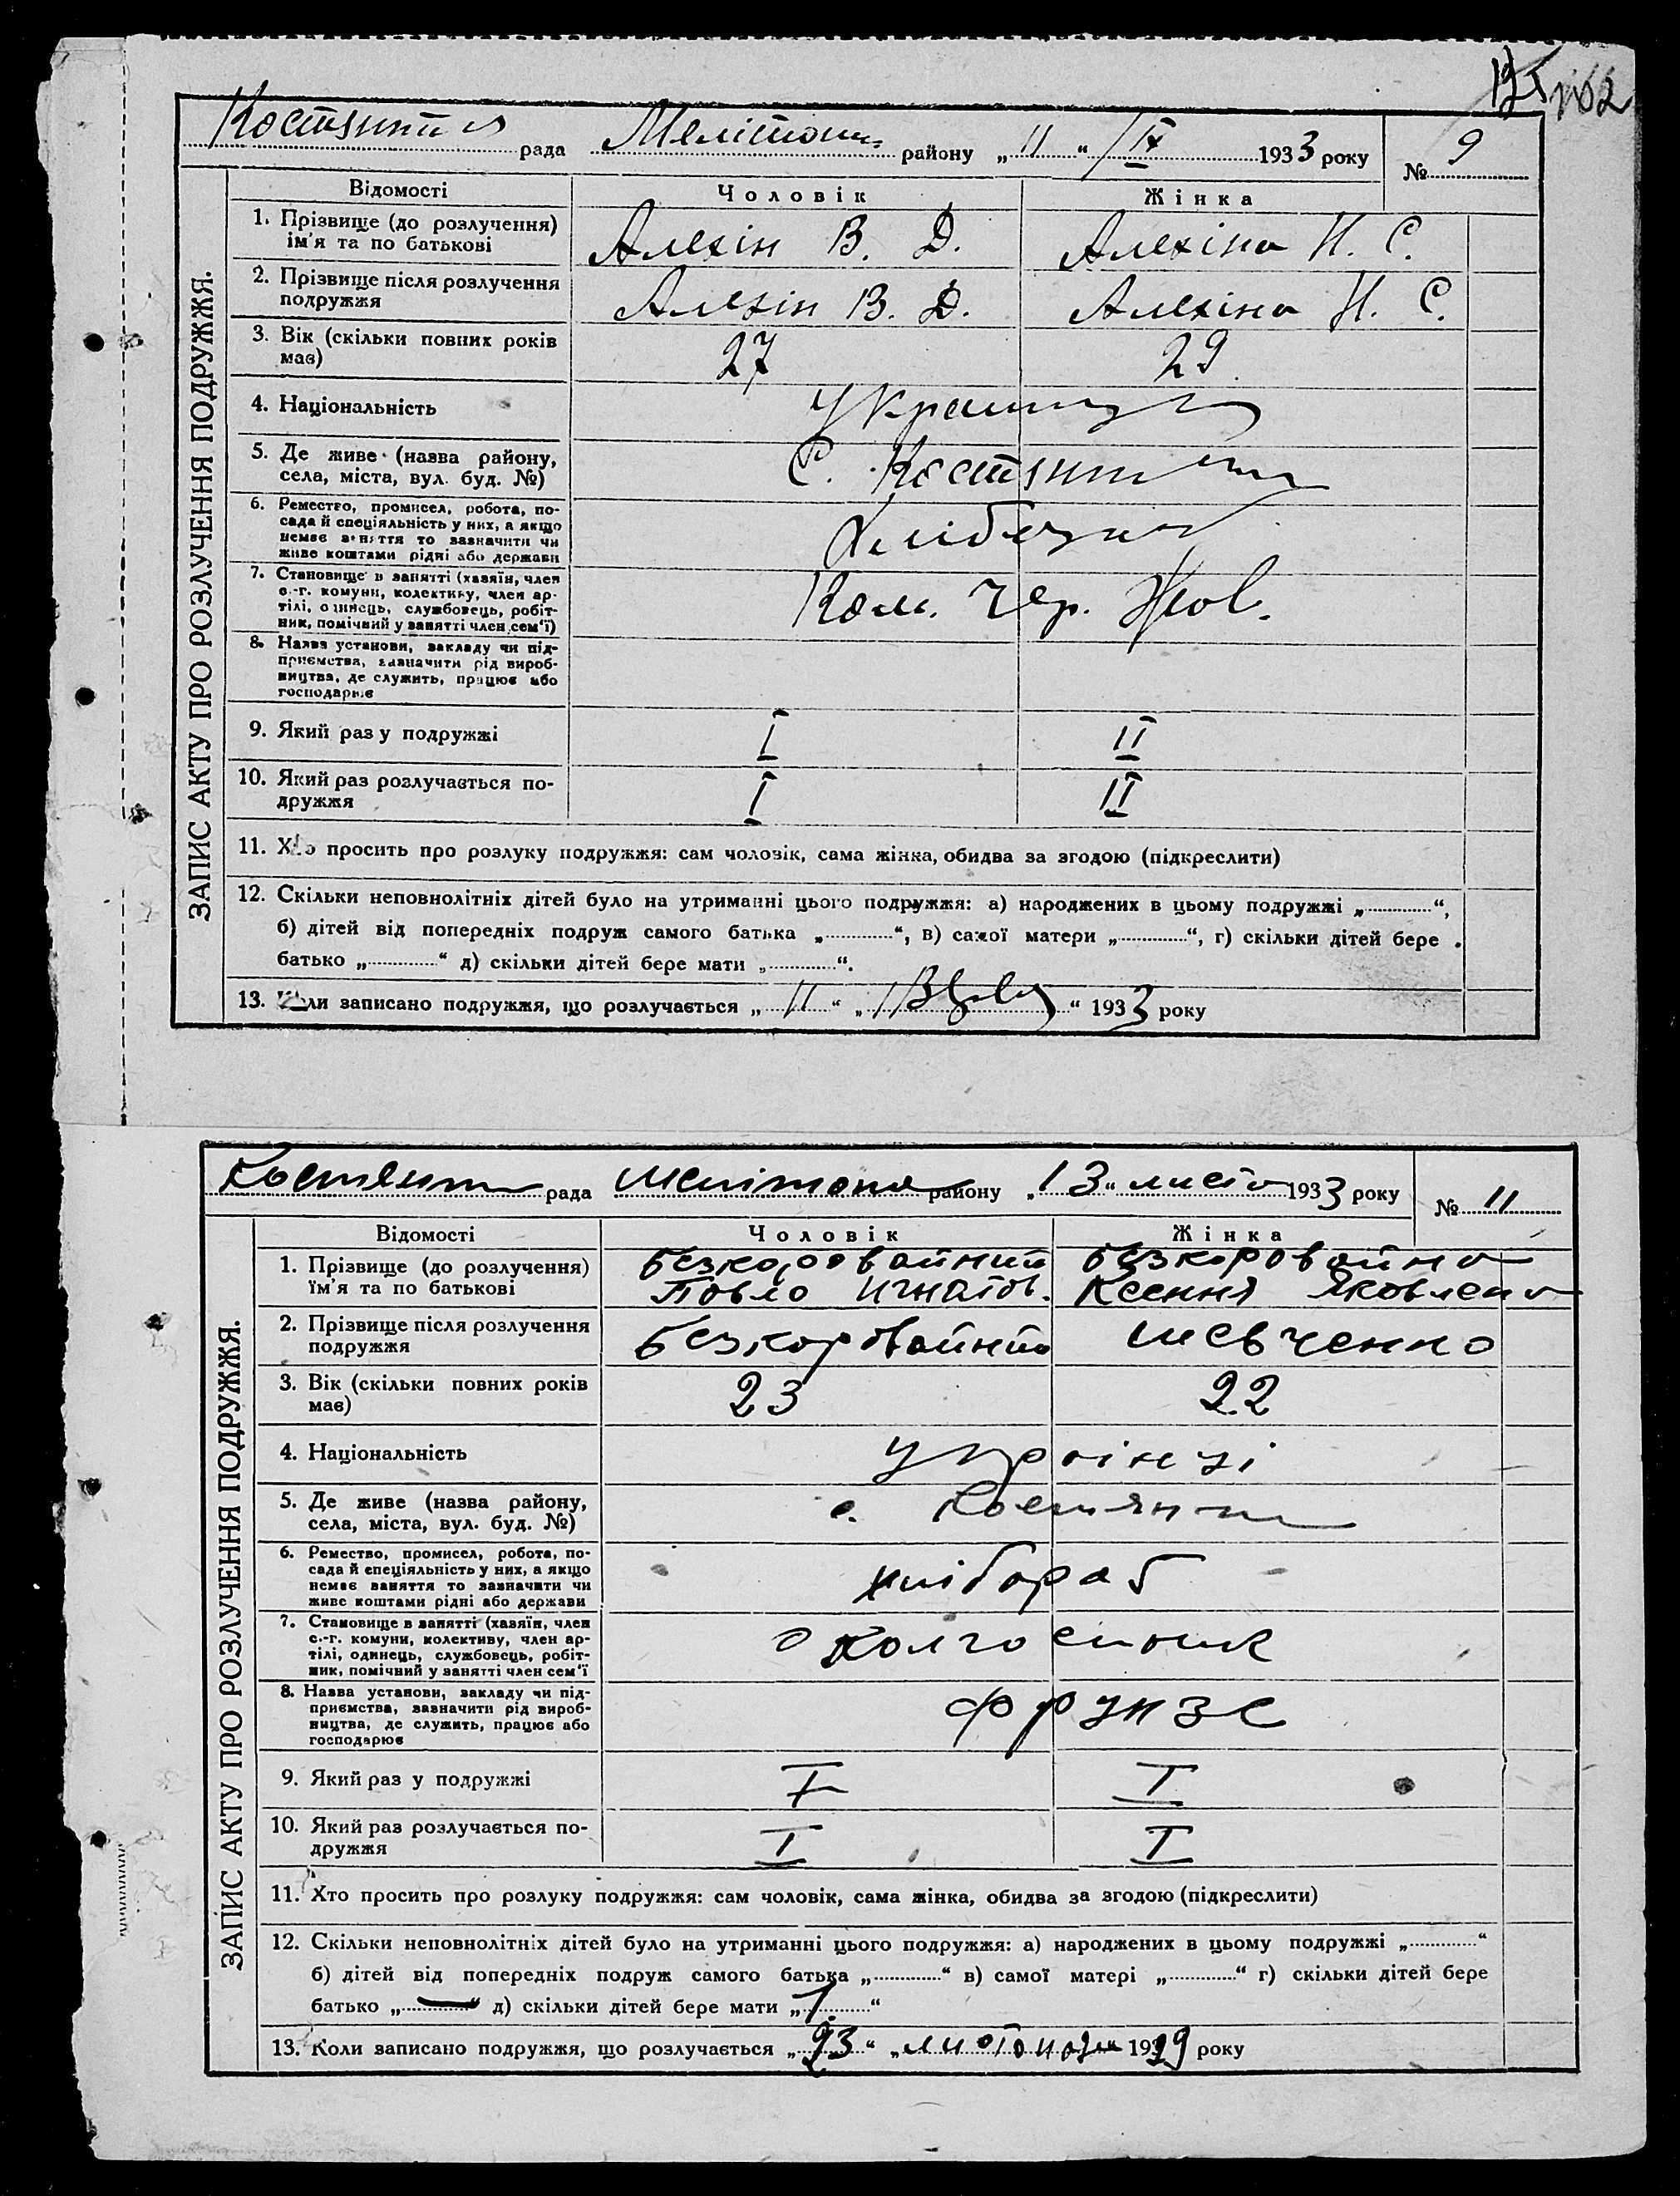 162
рада Мелітоп району „ 11 “ IX 1933 року № 9
ЗАПИС АКТУ ПРО РОЗЛУЧЕННЯ ПОДРУЖЖЯ.
Відомості Чоловік Жінка
1. Прізвище (до розлучення) Алехін В. Д. Алехіна Н. С.
ім'я та по батькові
2. Прізвище після розлучення Алехін В. Д. Алехіна Н. С.
подружжя
3. Вік (скільки повних років 27 29
має)
4. Національність
5. Де живе (назва району, С.
села, міста, вул. буд. №)
6. Ремество, промисел, робота, по-
сада й спеціяльність у них, а якщо
немає заняття то зазначити чи
живе коштами рідні або держави
7. Становище в занятті (хазяїн, член Кол. Чер. Жов.
с.-г. комуни, колективу, член ар-
тілі, одинець, службовець, робіт-
ник, помічний у занятті член сем'ї)
8. Назва установи, закладу чи під-
приємства, зазначити рід вироб-
ництва, де служить, працює або
господарює
9. Який раз у подружжі I II
10. Який раз розлучається по- I II
дружжя
11. Хто просить про розлуку подружжя: сам чоловік, сама жінка, обидва за згодою (підкреслити)
12. Скільки неповнолітніх дітей було на утриманні цього подружжя: а) народжених в цьому подружжі „ “,
б) дітей від попередніх подруж самого батька „ “, в) самої матери „ “, г) скільки дітей бере
батько „ “ д) скільки дітей бере мати „ “.
13. Коли записано подружжя, що розлучається „ 11 “ „ “ 1933 року
рада Мелітоп району „ 13 “ листо 1933 року № 11
ЗАПИС АКТУ ПРО РОЗЛУЧЕННЯ ПОДРУЖЖЯ.
Відомості Чоловік Жінка
1. Прізвище (до розлучення) Безкоровайний Безкоровайна
ім'я та по батькові Павло Игнатов. Ксения Яковлена
2. Прізвище після розлучення Безкоровайний Шевченко
подружжя
3. Вік (скільки повних років 23 22
має)
4. Національність українці
5. Де живе (назва району, с.
села, міста, вул. буд. №)
6. Ремество, промисел, робота, по- хлібороб
сада й спеціяльність у них, а якщо
немає заняття то зазначити чи
живе коштами рідні або держави
7. Становище в занятті (хазяїн, член колгоспник
с.-г. комуни, колективу, член ар-
тілі, одинець, службовець, робіт-
ник, помічний у занятті член сем'ї
8. Назва установи, закладу чи під- Фрунзе
приємства, зазначити рід вироб-
ництва, де служить, працює або
господарює
9. Який раз у подружжі I I
10. Який раз розлучається по- I I
дружжя
11. Хто просить про розлуку подружжя: сам чоловік, сама жінка, обидва за згодою (підкреслити)
12. Скільки неповнолітніх дітей було на утриманні цього подружжя: а) народжених в цьому подружжі „ “
б) дітей від попередніх подруж самого батька „ “ в) самої матері „ “ г) скільки дітей бере
батько „ — “ д) скільки дітей бере мати „ 1 “
13. Коли записано подружжя, що розлучається „ 23 “ „ листопада 1929 року